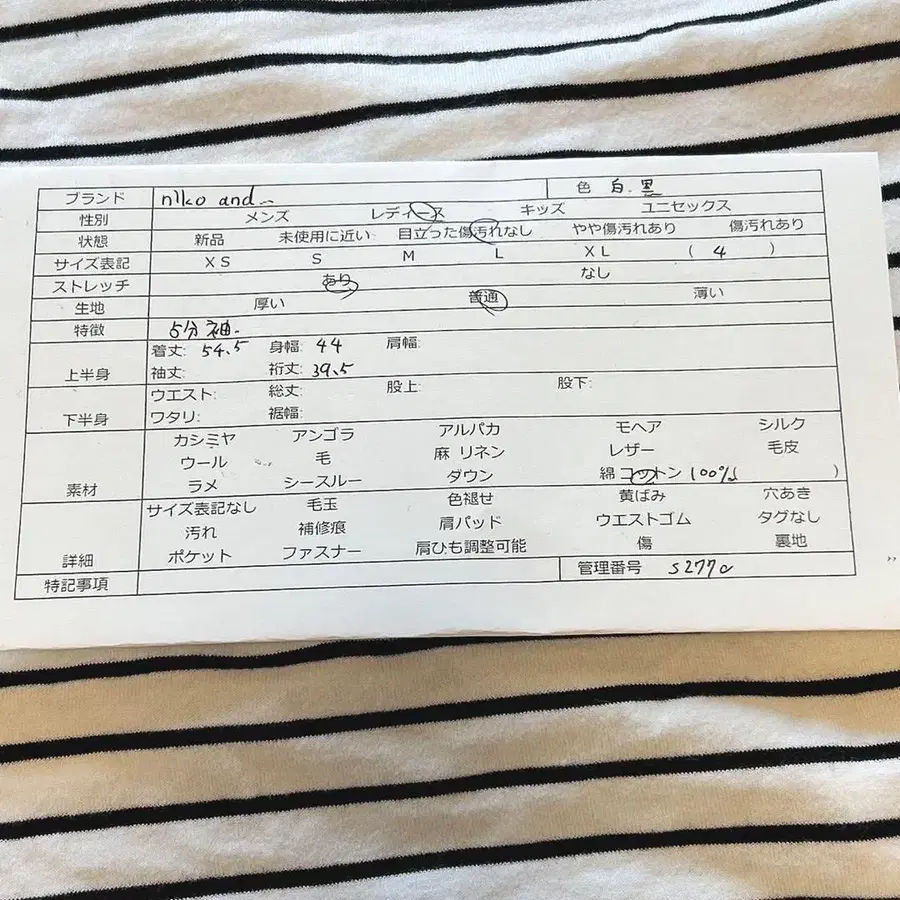 ブランド niko and... 色 白.黒
性別 メンズ レディース キッズ ユニセックス
状態 新品 未使用に近い 目立った傷汚れなし やや傷汚れあり 傷汚れあり
サイズ表記 XS S M L XL ( 4 )
ストレッチ あり なし
生地 厚い 普通 薄い
特徴 5分袖.
上半身 着丈: 54.5 身幅: 44 肩幅:
袖丈: 裄丈: 39.5
下半身 ウエスト: 総丈: 股上: 股下:
ワタリ: 裾幅:
素材 カシミヤ アンゴラ アルパカ モヘア シルク
ウール 毛 麻 リネン レザー 毛皮
ラメ シースルー ダウン 綿 コットン 100% )
詳細 サイズ表記なし 毛玉 色褪せ 黄ばみ 穴あき
汚れ 補修痕 肩パッド ウエストゴム タグなし
ポケット ファスナー 肩ひも調整可能 傷 裏地
特記事項 管理番号